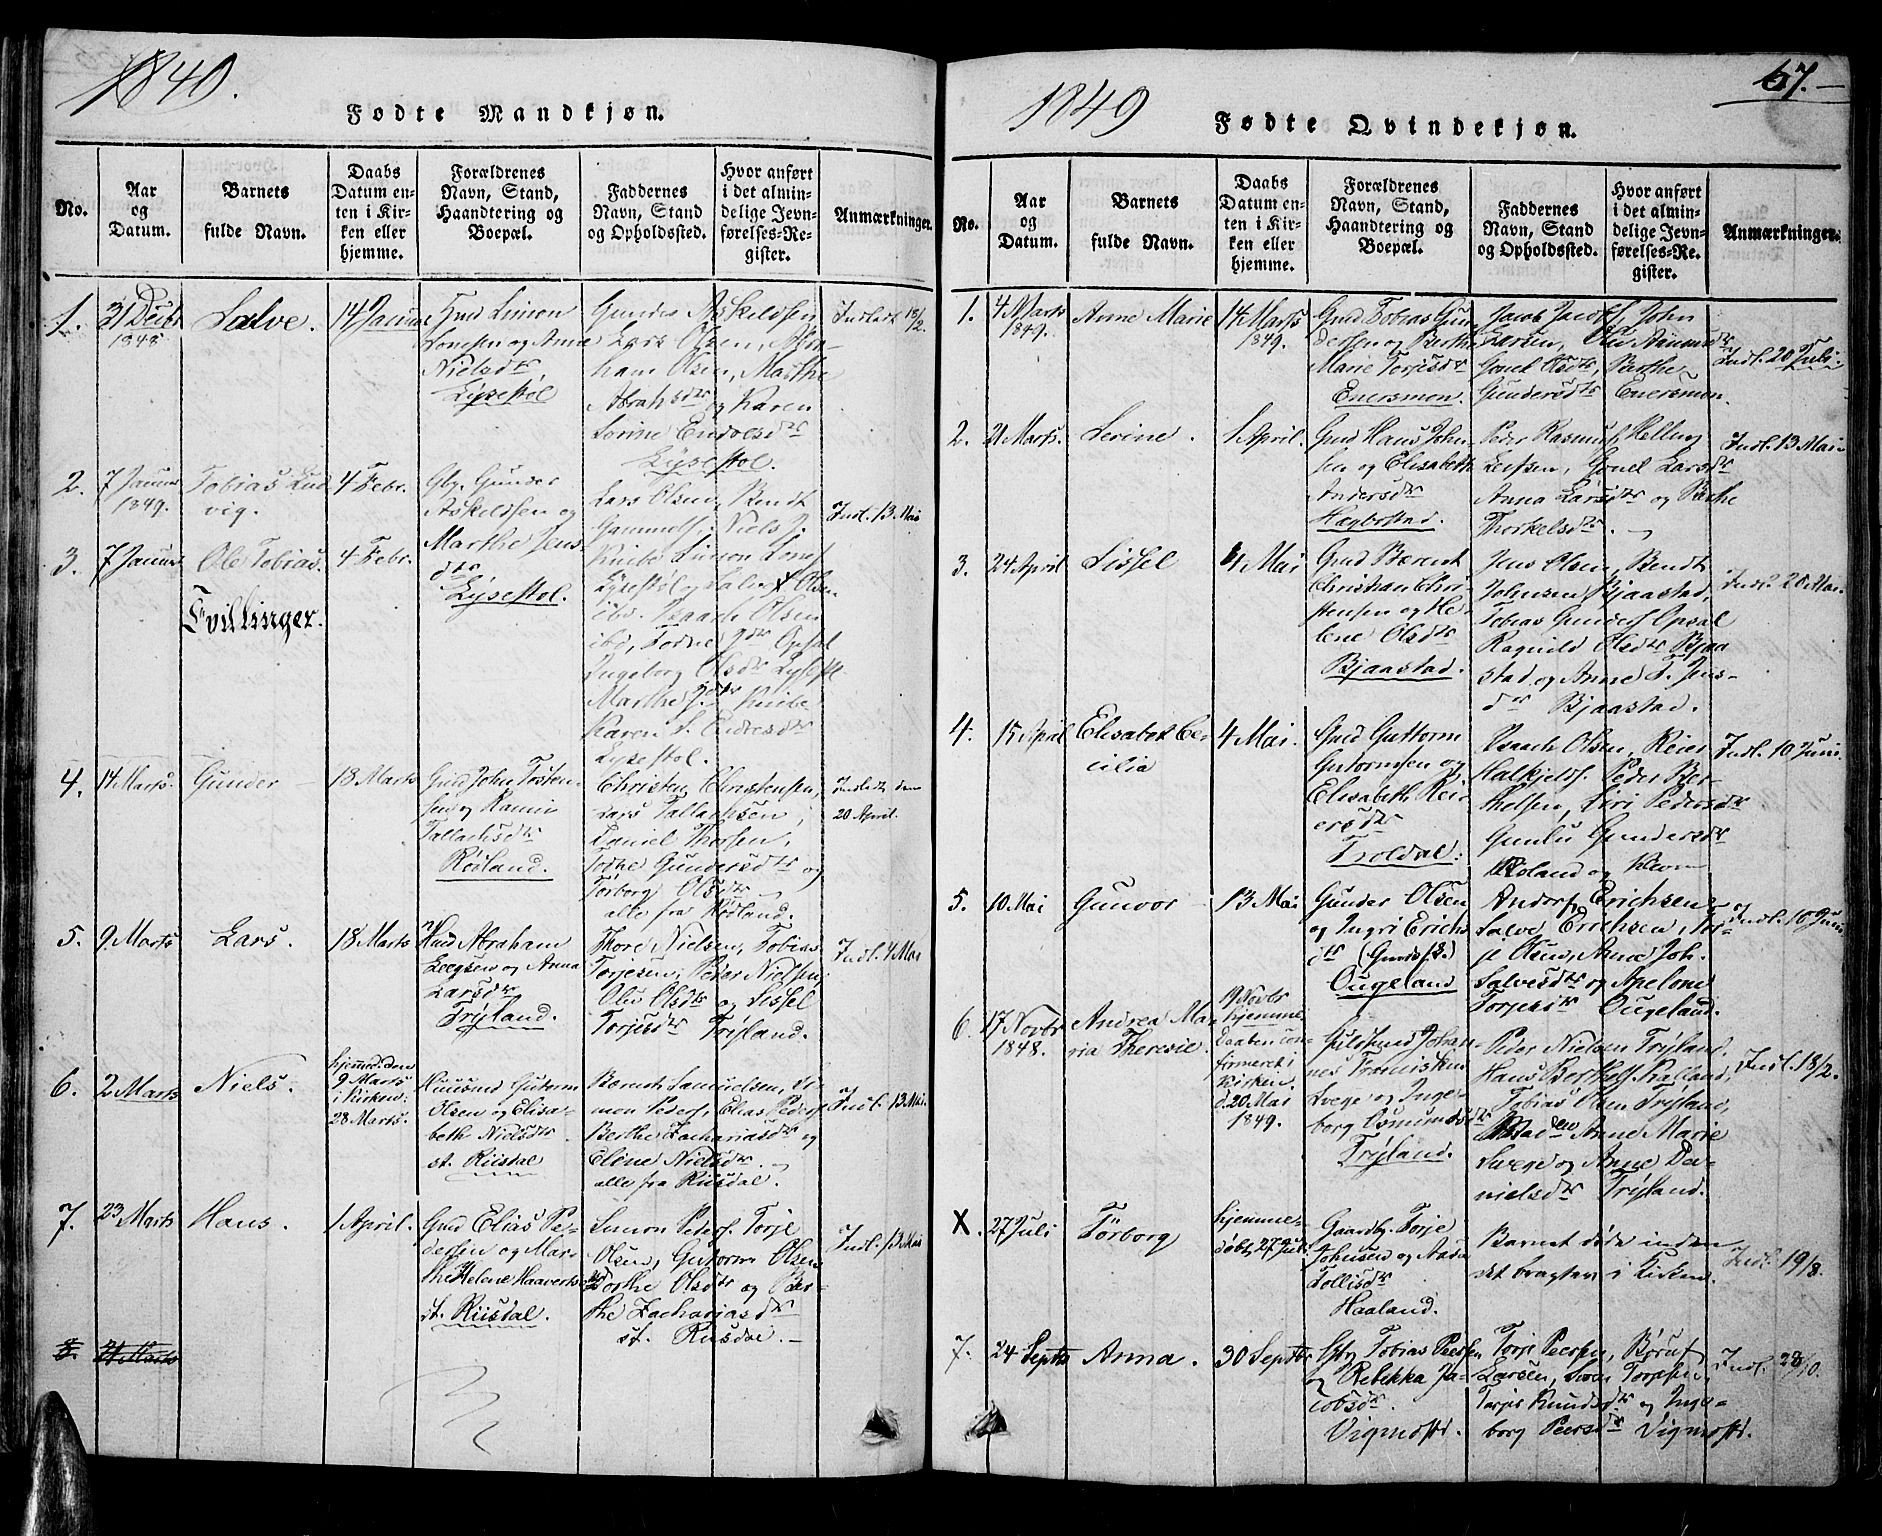 1849.
Fødte Mandkjøn.
No.
Aar
og
Datum.
Barnets
fulde Navn.
Daabs
Datum en-
ten i Kir-
ken eller
hjemme.
Forældrenes
Navn, Stand,
Haandtering og
Boepæl.
Faddernes
Navn, Stand
og Opholdssted.
Hvor anført
i det almin-
delige Jevn-
førelses-Re-
gister.
Anmærkninger.
1.
31 Decbr
1848
Salve.
14 Januar
Gmd Simon
Lonesen og Anne
Nielsdtr
Lysestøl
Gunder Askeldsen
Lars Olsen, Abra-
ham Olsen, Marthe
Abrahsdtr og Karen
Sorine Endresdtr
Lysestøl.
Indledt 18/2
2.
7 Januar
1849.
Tobias Lud
vig.
4 Febr.
Gbr. Gunder
Askeldsen og
Marthe Jens-
dtr
Lysestøl.
Lars Olsen, Bendt
Gammels. Niels J.
Indl. 13 Mai
3.
7 Januar
Ole Tobias.
Tvillinger.
4 Febr.
Knibe Simon Lones.
Lysestøl og Olsen
ibd. Isaach Olsen
ibd, Opsal
Ingeborg Olsdtr Lysestl.
Marthe J.dtr Knibe
Karen S. Endresdtr
Lysestøl.
4.
14 Marts.
Gunder
18 Marts
Gmd John Tosten
sen og Rannei
Tallachsdtr
Røsland.
Christen Christensen,
Lars Tallachsen,
Daniel Thorsen,
Tothe Gundersdtr og
Torborg Olsdtr
alle fra Røsland.
Indledt den
20 April.
5.
9 Marts
Lars.
18 Marts
Hmd Abraham
Leegsen og Anna
Larsdtr
Trÿland.
Thore Nielsen, Tobias
Torjesen, Peder Nielsen,
Olev Olsdtr og Sissel
Torjesdtr Trÿland.
Indl. 4 Mai
6.
2 Marts
Niels.
hjemmed. den
9 Marts
i Kirken:
28 Marts.
Huusmd Gutorm
Olsen og Elisa-
beth Nielsdtr
st. Riisdal
Berent Samuelsen, Si-
mon Peders, Elias Peders.
Berthe Zachariasdtr og
Elene Nielsdtr
alle fra Riisdal.
Indl. 13 Mai.
7.
23 Marts
Hans.
1 April.
Gmd Elias Pe-
dersen og Mar-
the Helene Haavertsd
st. Riisdal.
Simon Peders. Torje
Olsen, Gutorm Olsen
Dorthe Olsdtr og Ber-
the Zachariasdtr
st. Riisdal.
Indl. 13 Mai
8.
21 Marts
1849
67.
Fødte Qvindekjøn.
No.
Aar
og
Datum.
Barnets
fulde Navn.
Daabs
Datum en-
ten i Kir-
ken eller
hjemme.
Forældrenes
Navn, Stand,
Haandtering og
Boepæl.
Faddernes
Navn, Stand
og Opholdssted.
Hvor anført
i det almin-
delige Jevn-
førelses-Re-
gister.
Anmærkninger.
1.
4 Marts
1849.
Anne Marie
14 Marts
1849.
Gmd Tobias Gun
dersen og Berthe
Marie Torjesdtr
Enersmon.
Jacob Jacobs. John
Larsen, Ole Aanensdtr
Gonel Olsdtr, Berthe
Gundersdtr Enersmon.
Indl. 20 Juli.
2.
21 Marts.
Serine.
1 April.
Gmd Hans John-
sen og Elisabeth
Andersdtr
Hægbostad.
Peder Rasmus. Helling
Leifsen, Gonel Larsdtr
Anna Larsdtr og Berthe
Thorkelsdtr.
Indl. 13 Mai.
3.
24 April
Sissel
4 Mai
Gmd Berent
Christian Chri-
stensen og He-
lene Olsdtr
Bjaastad.
Jens Olsen, Bendt
Johnsen Bjaastad,
Tobias Gunders. Opsal
Ragnild Olsdtr Bjaa
stad og Anne T. Jens-
dtr Bjaastad.
Indl. 20 Mai.
4.
15 April
Elisabet Ce-
cilia
4 Mai.
Gmd Guttorm
Gutormsen og
Elisabeth Rei-
ersdtr
Troldal.
Isaach Olsen, Reier
Halkjels. Peder Ber-
thelsen, Siri Pedersdtr
Gunlu Gundersdtr
Røsland og Kleven
Indl. 10 Juni.
5.
10 Mai
Gunvor
13 Mai
Gunder Olsen
og Ingri Erichs
dtr
Ougeland
Anders Erichsen og
Salve Erichsen, Tor-
je Olsen, Anne Joh.
Salvesdtr og Apelone
Torjesdtr Ougeland.
Indl. 10 Juni
6.
17 Novbr
1848.
Andrea Ma
ria Theresie.
19 Novbr
hjemme
Daaben con-
firmeret i
Kirken.
d. 20 Mai
1849.
Johan-
nes Franciskus
Svege og Inge-
borg Osmundsdtr
Trÿland.
Peder Nielsen Trÿland.
Hans Berthels.
Tobias Olsen Trÿland,
Anne Marie
Svege og Anne Da-
nielsdtr Trÿland.
Indl. 18/2.
X.
27 Juli
Torborg
hjemme-
døbt 27 Juli
Gaardbr. Torje
Johnsen og
Tollisdtr
Haaland.
Barnet døde inden
det bragtes i Kirken.
Indl. 19/8.
7.
24 Septbr
Anna.
30 Septbr
Gbr Tobias Peersen
og Rebekka Ja-
cobsdtr.
Vigmosti.
Torje Peersen, Børuf
Larsen, Sven Torjesen,
Torjer Knudsdtr og Inge-
borg Peersdtr Vigmosti.
Indl. 28/10.